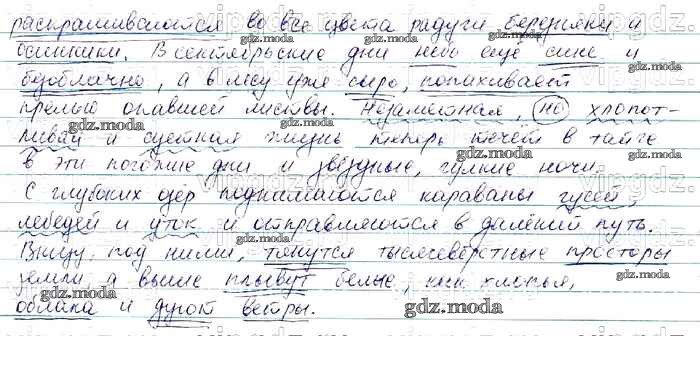 раскрашиваются во все цвета радуги березняки и
осинники. В сентябрьские дни небо ещё сине и
безоблачно, а в лесу уже сыро, попахивает
прелью опавшей листвы. Незаметная, но хлопот-
ливая и суетная жизнь теперь течёт в тайге
в эти погожие дни и звёздные, гулкие ночи.
С глубоких озёр поднимаются караваны гусей,
лебедей и уток и отправляются в далёкий путь.
Внизу, под ними, тянутся тысячевёрстные просторы
земли, а выше плывут белые, как хлопья,
облака и дуют ветры.